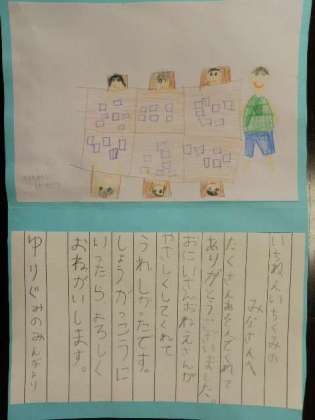 いちねんいちくみの
みなさんへ
たくさんあそんでくれて
ありがとうございました。
おにいさんおねえさんが
やさしくしてくれて
うれしかったです。
しょうがっこうに
いったらよろしく
おねがいします。
ゆりぐみのみんなより